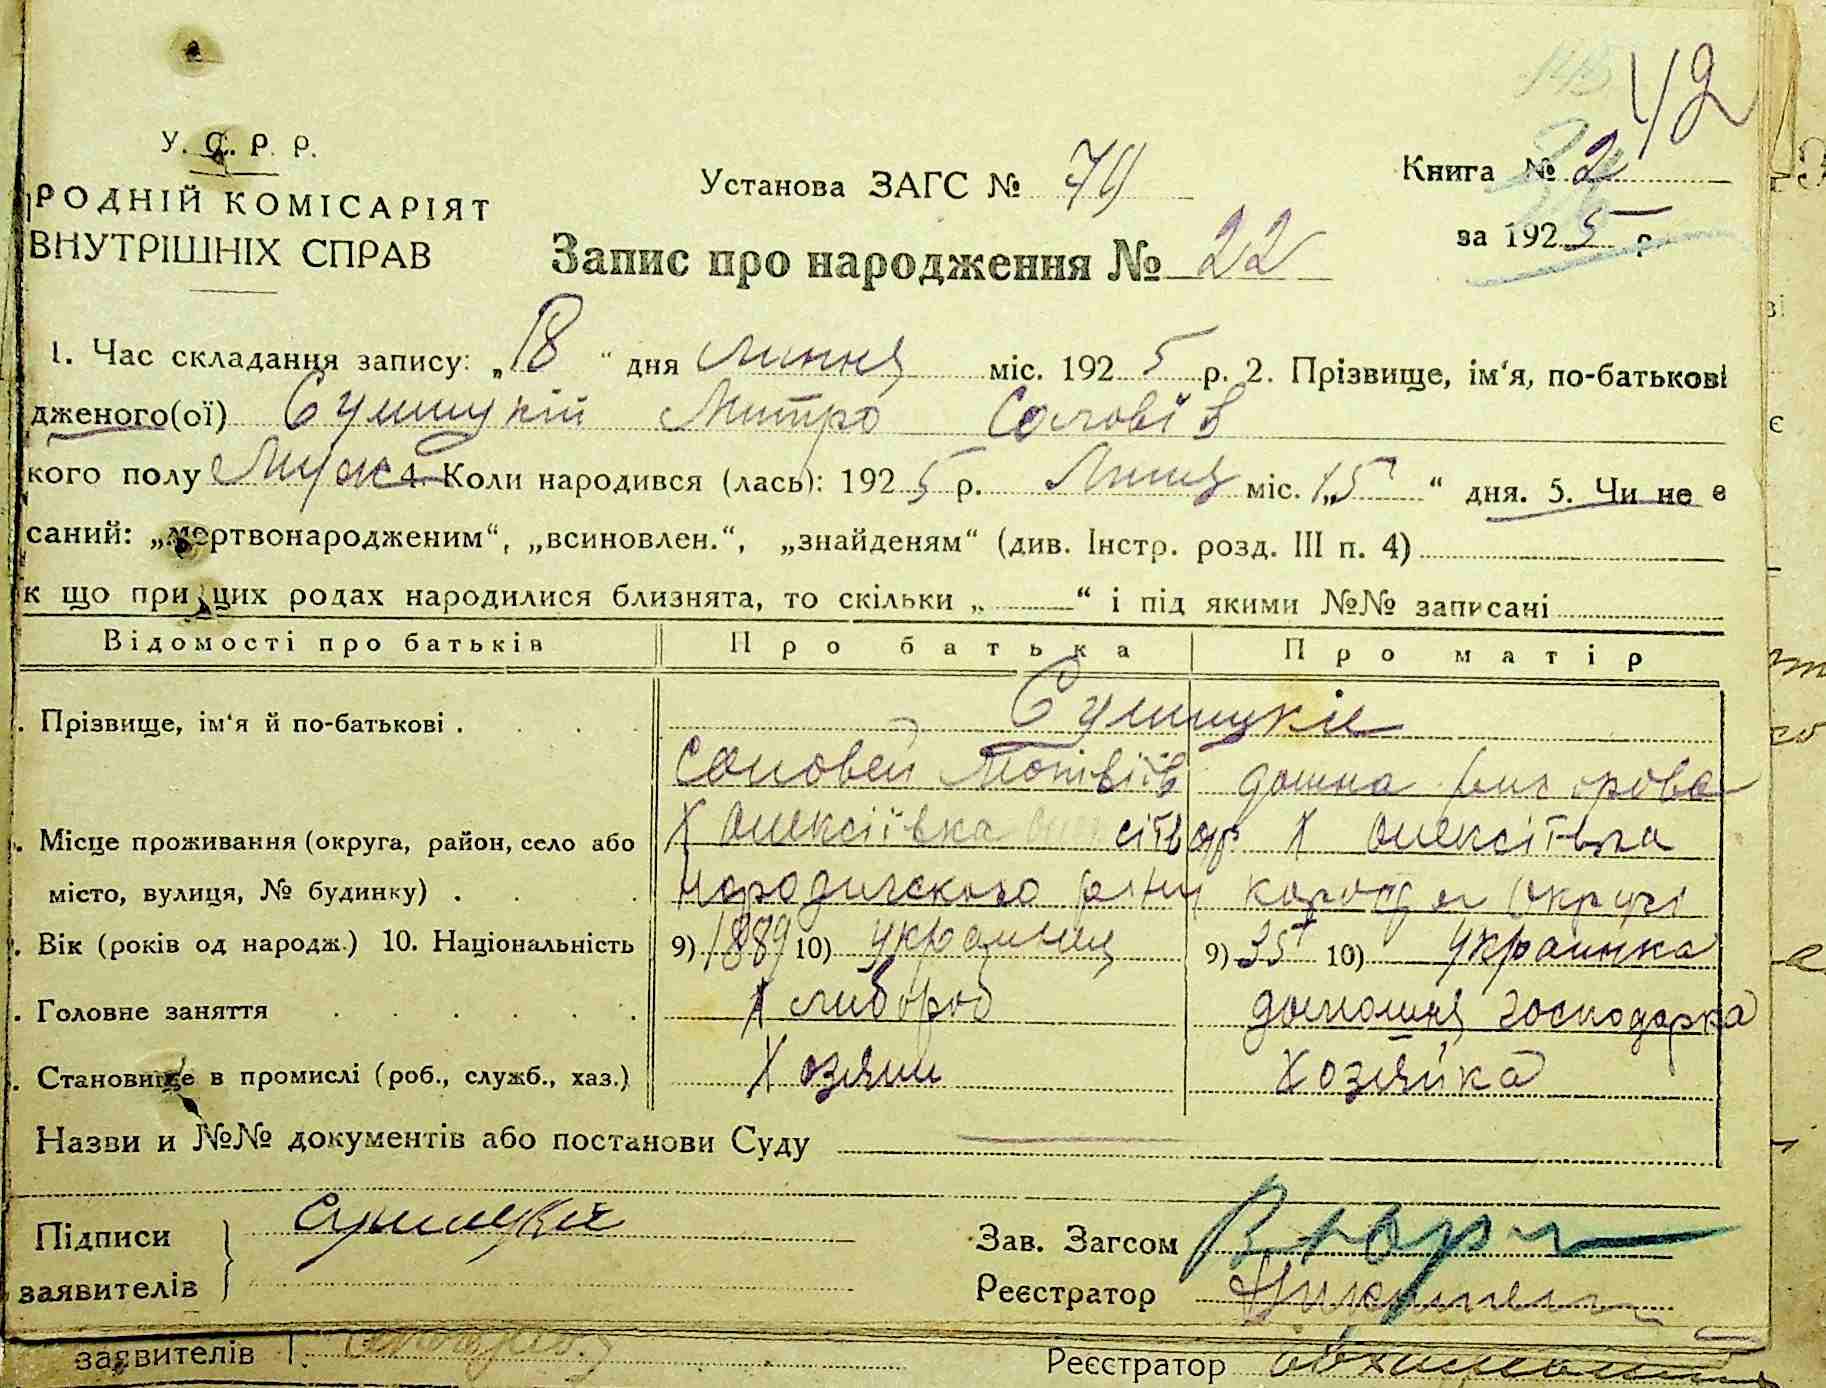 42
У. С. Р. Р.
РОДНІЙ КОМІСАРІЯТ
ВНУТРІШНІХ СПРАВ
Установа ЗАГС № 74
Книга № 2
за 1925 р
Запис про народження № 22
1. Час складання запису: „18“ дня липня міс. 1925 р. 2. Прізвище, ім‘я, по-батькові
дженого(ої) Сумицкий Митро Соловіїв
кого полу Муж 4. Коли народився (лась): 1925 р. Липня міс. „15“ дня. 5. Чи не є
саний: „мертвонародженим“, „всиновлен.“, „знайденям“ (див. Інстр. розд. III п. 4)
к що при цих родах народилися близнята, то скільки „ “ і під якими №№ записані
Відомості про батьків Про батька Про матір
. Прізвище, ім‘я й по-батькові . Сумицкие
Соловей Матвіїв домна григорова
. Місце проживання (округа, район, село або Х Олексіївка Х Олексіївка
місто, вулиця, № будинку) . Народичского рану корост округі
. Вік (років од народж.) 10. Національність 9) 1889 10) украинец 9) 35 10) Украинка
. Головне заняття Хлибороб домошня господарка
. Становище в промислі (роб., служб., хаз.) Хозяин Хозяйка
Назви и №№ документів або постанови Суду
Підписи
заявителів
Зав. Загсом
Реєстратор
заявителів
Реєстратор